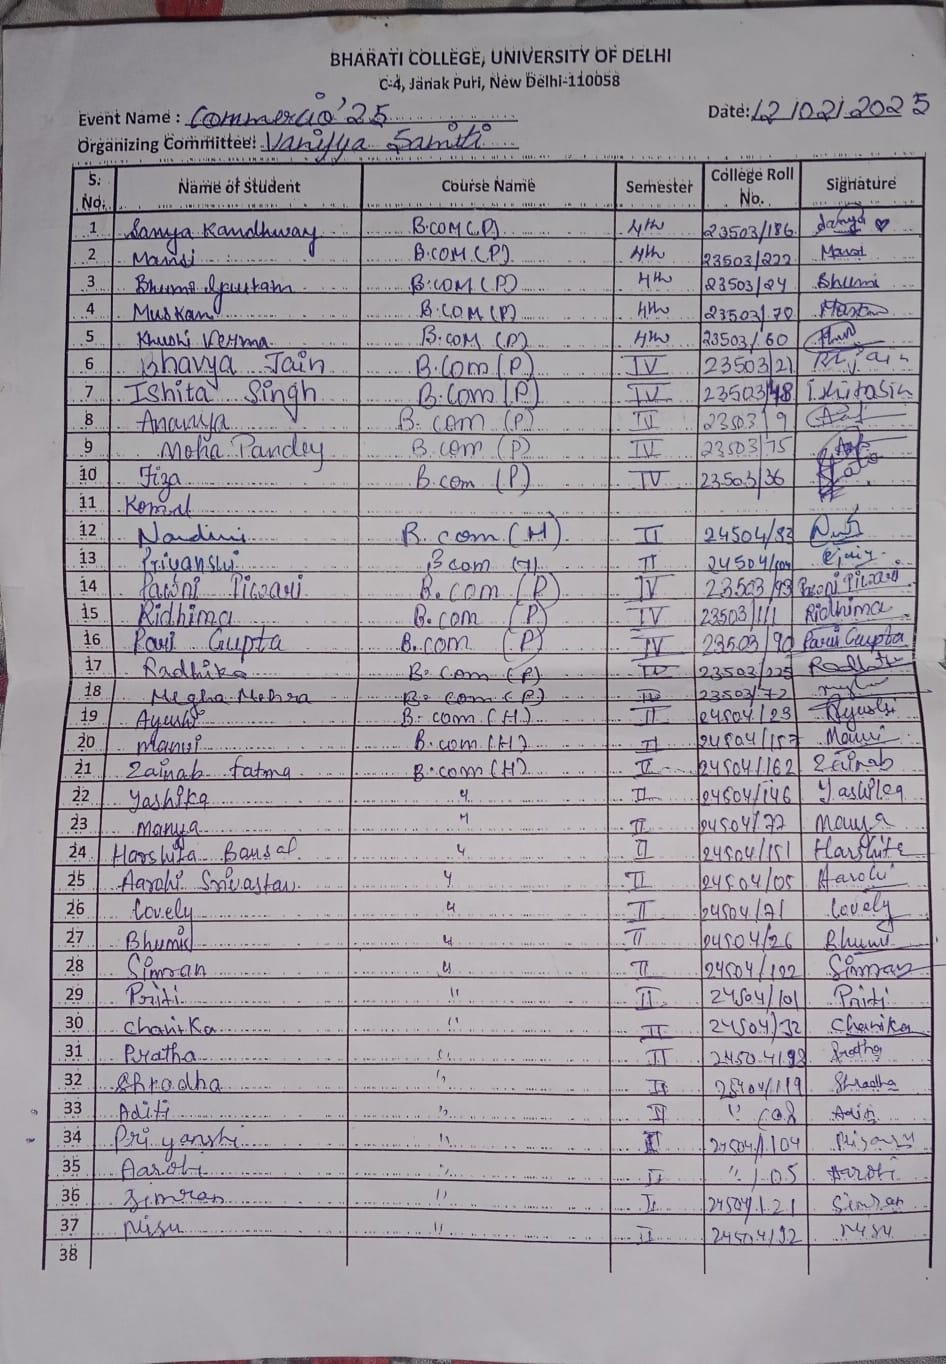 BHARATI COLLEGE, UNIVERSITY OF DELHI
C-4, Janak Puri, New Delhi-110058
Event Name : Commercio'25 Date: 12/02/2025
Organizing Committee: Vanijya Samiti
S. No. Name of Student Course Name Semester College Roll No. Signature
1 Sanya Kandhway B.COM(P) 4th 23503/186 Sanya ♥
2 Mansi B.COM(P) 4th 23503/222 Mansi
3 Bhumi Gautam B.COM(P) 4th 23503/24 Bhumi
4 Muskan B.COM(P) 4th 23503/70 Muskan
5 Khushi Verma B.COM (P) 4th 23503/60
6 Bhavya Jain B.Com(P) IV 23503/21 Jain
7 Ishita Singh B.Com(P) IV 23503/48 Ishita Sin
8 Ananya B.com (P) IV 23503/9
9 Moha Pandey B.com (P) IV 23503/75
10 Fiza B.com (P) IV 23503/36
11 Komal
12 Nandini B.com(H) II 24504/83
13 Priyanshi B com (H) II 24504/
14 Pavni Tiwari B.com (P) IV 23503/93 Pavni Tiwari
15 Ridhima B.com (P) IV 23503/111 Ridhima
16 Pari Gupta B.com (P) IV 23503/90 Pari Gupta
17 Radhika B.com (P) IV 23503/225 Radhika
18 Megha Mehra B.com (P) IV 23503/72
19 Ayushi B.com(H) II 24504/23 Ayushi
20 Manvi B.com(H) II 24504/157 Manvi
21 Zainab Fatma B.com(H) II 24504/162 Zainab
22 Yashika " II 24504/146 Yashika
23 Manya " II 24504/77 Manya
24 Harshita Bansal " II 24504/151 Harshita
25 Aarohi Srivastav " II 24504/05 Aarohi
26 Lovely " II 24504/71 Lovely
27 Bhumi " II 24504/26 Bhumi
28 Simran " II 24504/122 Simran
29 Priti " II 24504/101 Priti
30 Charika " II 24504/32 Charika
31 Pratha " II 24504/98 Pratha
32 Shradha " II 24504/119 Shradha
33 Aditi " II " /08 Aditi
34 Priyanshi " II 24504/104
35 Aarohi " II " /05 Aarohi
36 Simran " II 24504/121 Simran
37 Nisu " II 24504/92 Nisu
38